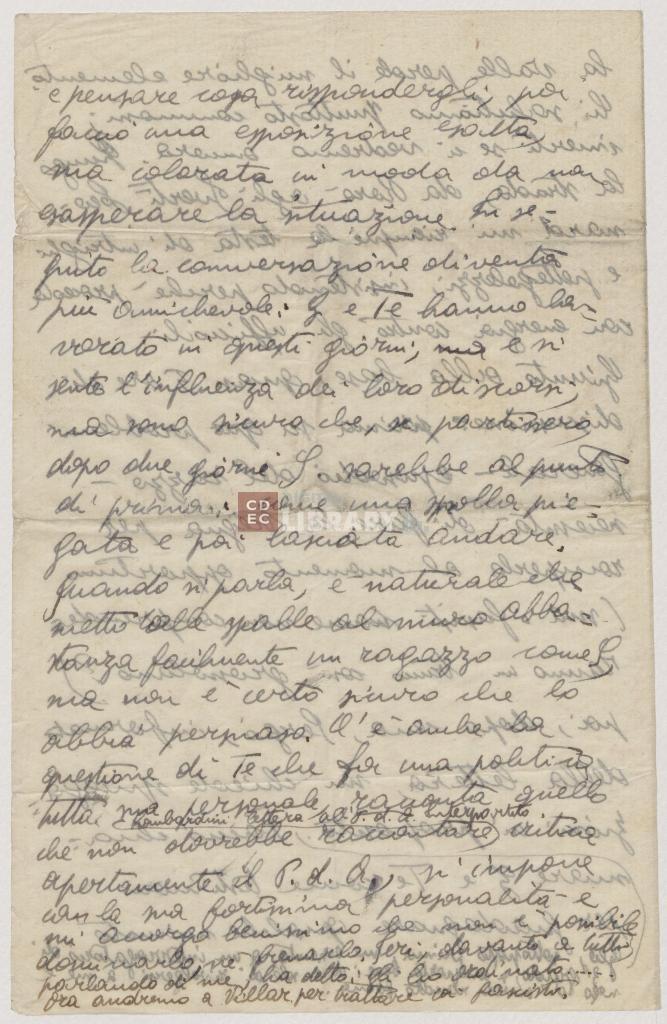 e pensare cosa rispondergli, poi
faccio una esposizione esatta,
ma colorata in modo da non
esasperare la situazione. In se-
guito la conversazione diventa
più amichevole: S. e Te hanno la-
vorato in questi giorni, ma e si
sente l'influenza dei loro discorsi,
ma sono sicuro che, se partissero,
dopo due giorni S. sarebbe al punto
di prima: come una molla pie-
gata e poi lasciata andare.
Quando si parla, è naturale che
metto colle spalle al muro abba-
stanza facilmente un ragazzo come S
ma non è certo sicuro che lo
abbia persuaso. C'è anche la
questione di Te che fa una politica
tutta sua personale, racconta quello
(Lombardini lettera al P. d. A. interpartito
che non dovrebbe raccontare) critica
apertamente il P. d. A., s'impone
con la sua fortissima personalità e
mi accorgo benissimo che non è possibile
dominarlo, nè frenarlo. Ieri, davanti a tutti
parlando di me, ha detto: gli ho ordinato.....
ora andremo a Villar per trattare coi fascisti.
CD
EC LIBRARY